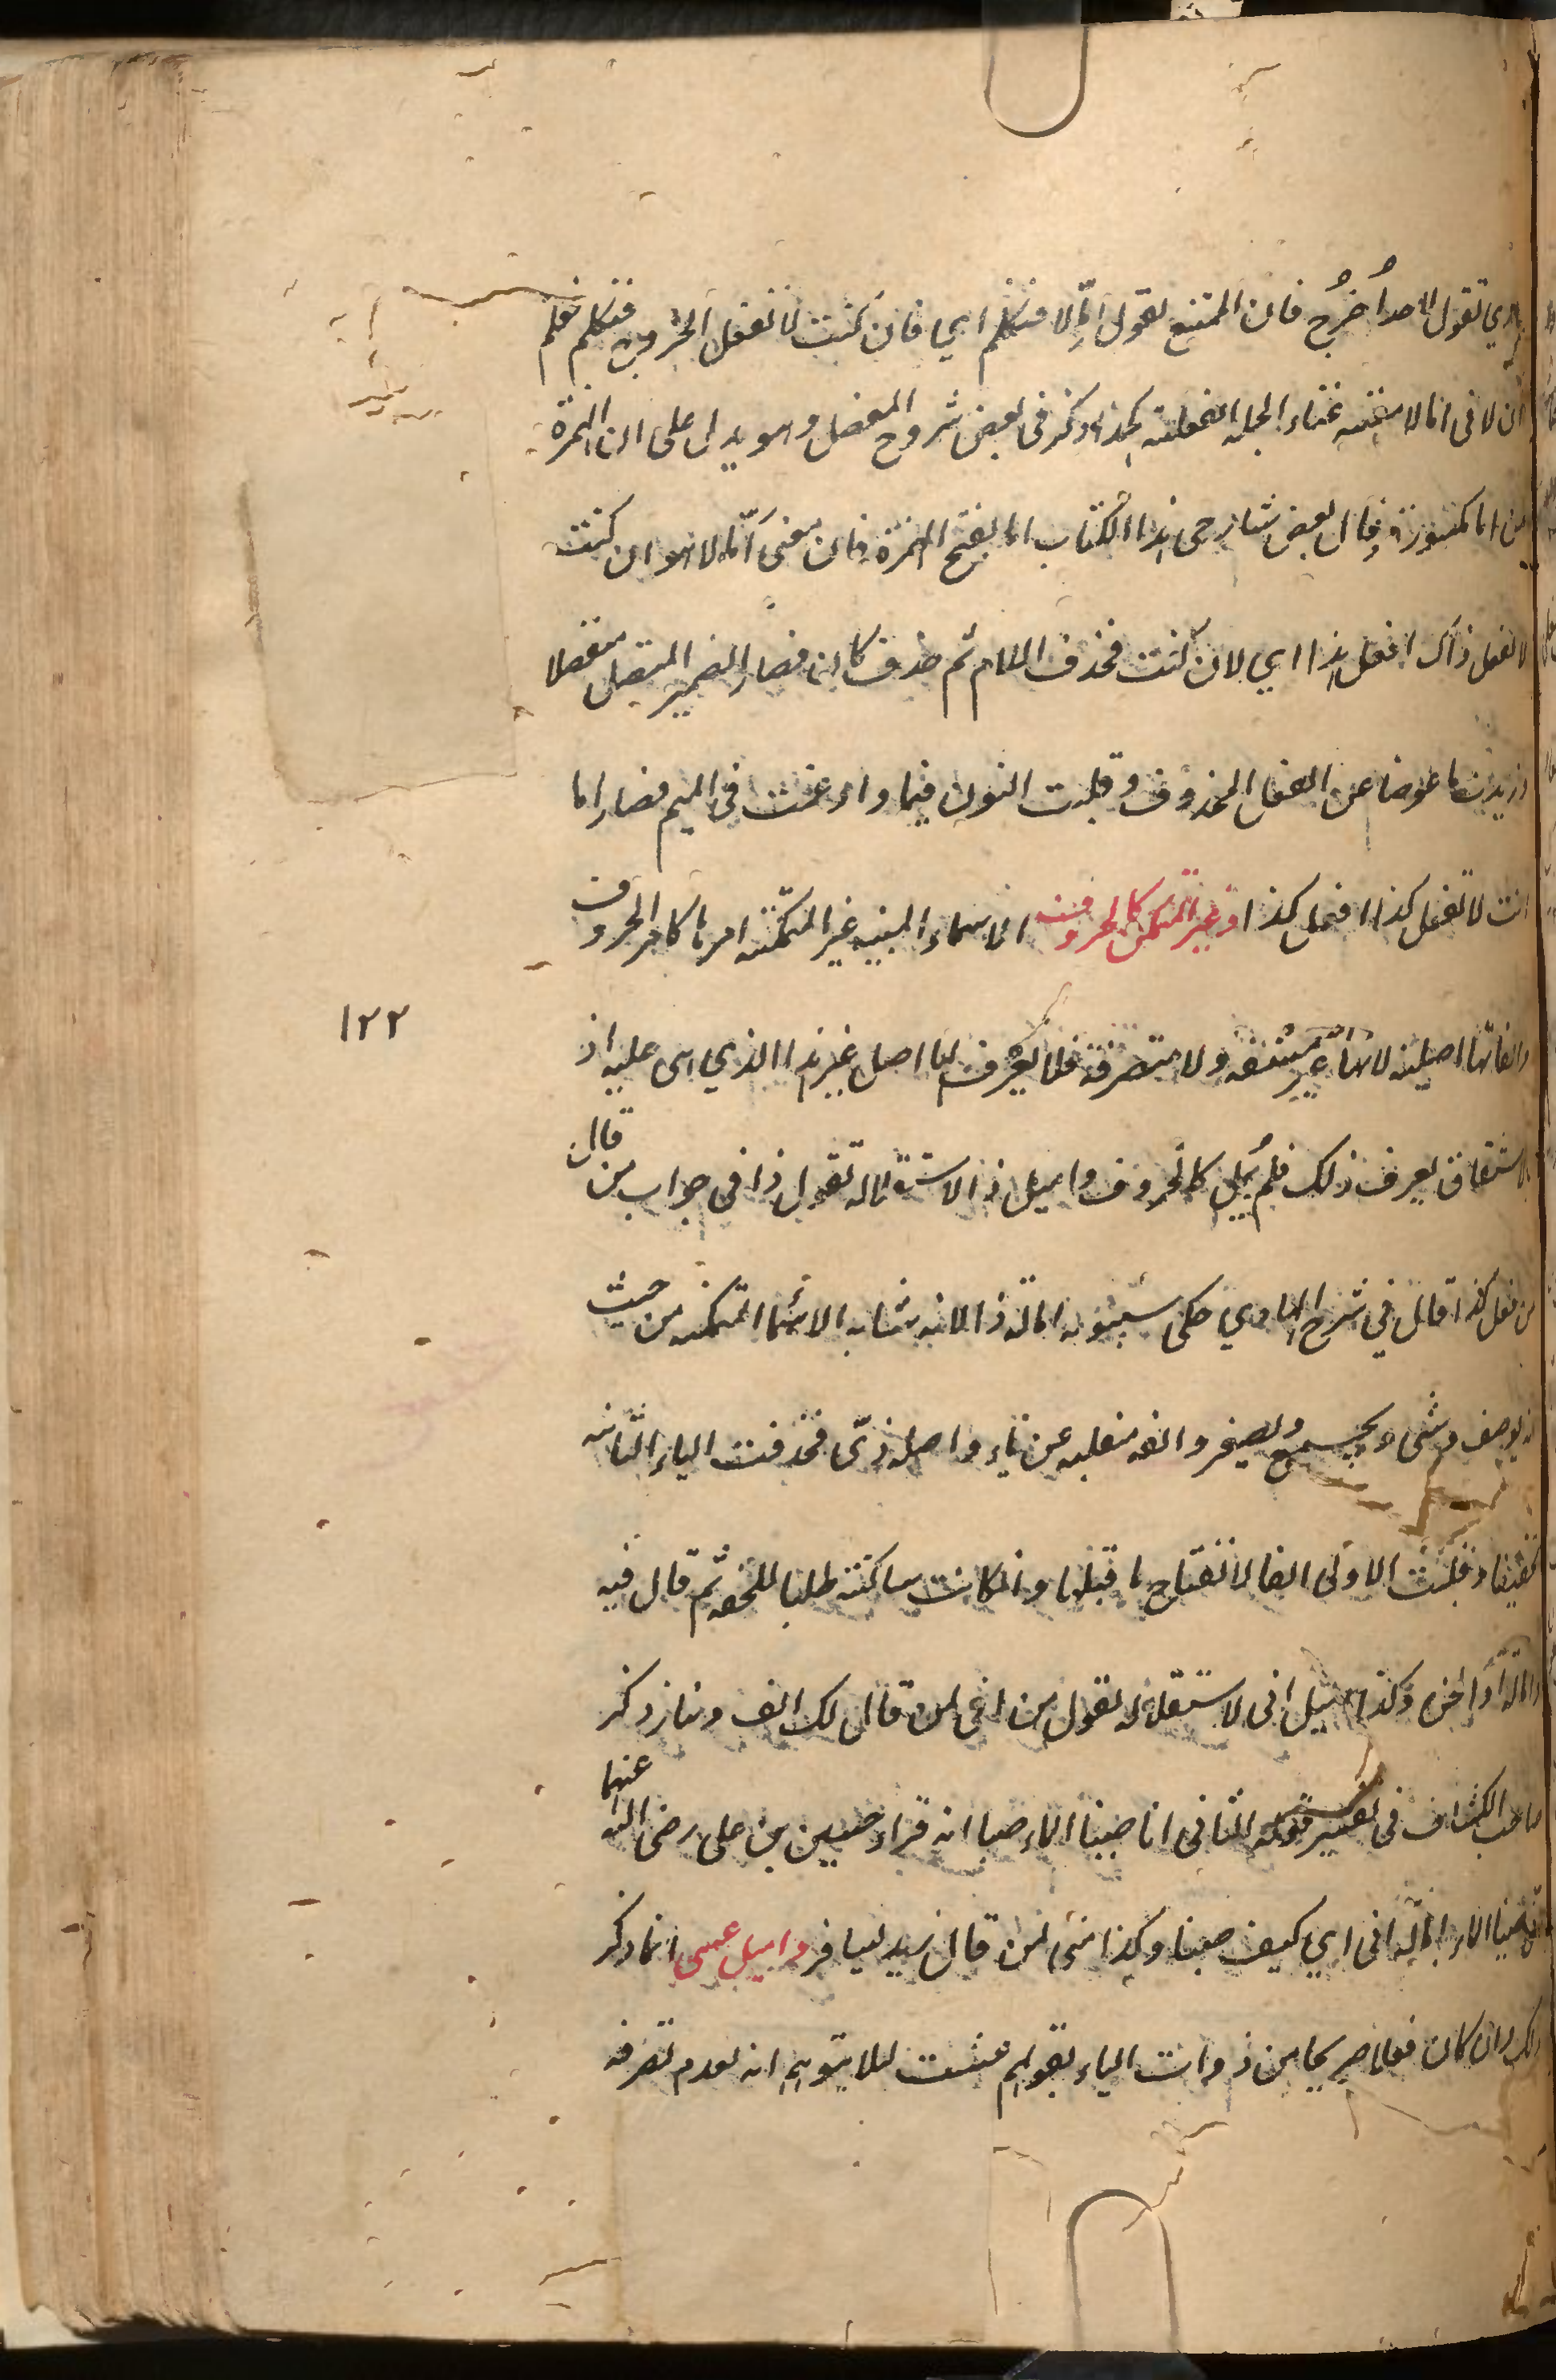 تقول لاحد اُخرُج فان الممتنع يقول اِمّا لا فتكلم اي فان كنت لا تفعل الخروج فتكلم فعلم
ان لا فى اما لا مغنية غناء الجملة الفعلية كذا ذكر فى بعض شروح المفصل وهو يدل على ان الهمزة
من اما مكسورة وقال بعض شارحى هذا الكتاب اما بفتح الهمزة فان معنى اَمّا لا هو ان كنت
لا تفعل ذاك افعل هذا اي لان كنت فحذف اللام ثم حذف كان فصار الضمير المتصل منفصلا
وزيدت ما عوضا عن الفعل المحذوف وقلبت النون ميما وادغمت فى الميم فصار اما
انت لا تفعل كذا افعل كذا وغير المتمكن كالحروف الاسماء المبنية غير المتمكنة امرها كامر الحروف
والفاتها اصلية لانها غير مشتقة ولا متصرفة فلا يعرف لها اصل غير هذا الذي هى عليه اذ
بالاشتقاق يعرف ذلك فلم يُمل كالحروف واميل ذا لاستقلاله تقول ذا فى جواب من قال
من فعل كذا قال في شرح الهادي حكى سيبويه امالة ذا لانه شابه الاسماء المتمكنة من حيث
انه يوصف ويثنى ويجمع ويصغر والفه منقلبة عن ياء واصله ذيّ فحذفت الياء الثانية
تخفيفا وقلبت الاولى الفا لانفتاح ما قبلها وان كانت ساكنة طلبا للخفة ثم قال فيه
وكذا اميل انى لاستقلاله تقول من انى لمن قال لك الف دينار ذكر
صاحب الكشاف فى تفسير قوله تعالى انا صببنا الماء صبا انه قراء حسين بن على رضى الله عنهما
انى صببنا الماء بامالة انى اي كيف صببنا وكذا متى لمن قال زيد يسافر واميل عسى انما ذكر
ذلك وان كان فعلا صريحا من ذوات الياء بقولهم عسيت لئلا يتوهم انه لعدم تصرفه
١٢٢